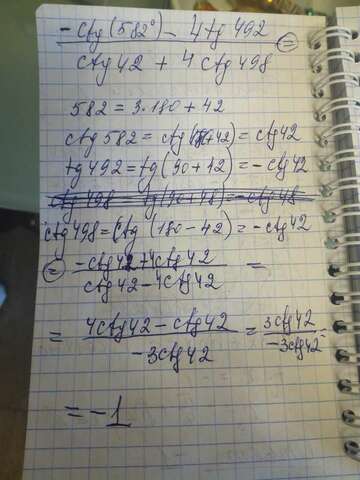 -ctg(582°) - 4tg 492 =
ctg 42 + 4 ctg 498
582 = 3·180 + 42
ctg 582 = ctg( +42) = ctg 42
tg 492 = tg(90+42) = -ctg 42
ctg 498 = ctg(180-42) = -ctg 42
= -ctg 42 + 4ctg 42 =
ctg 42 - 4ctg 42
= 4ctg 42 - ctg 42 = 3ctg 42 =
-3ctg 42 -3ctg 42
= -1